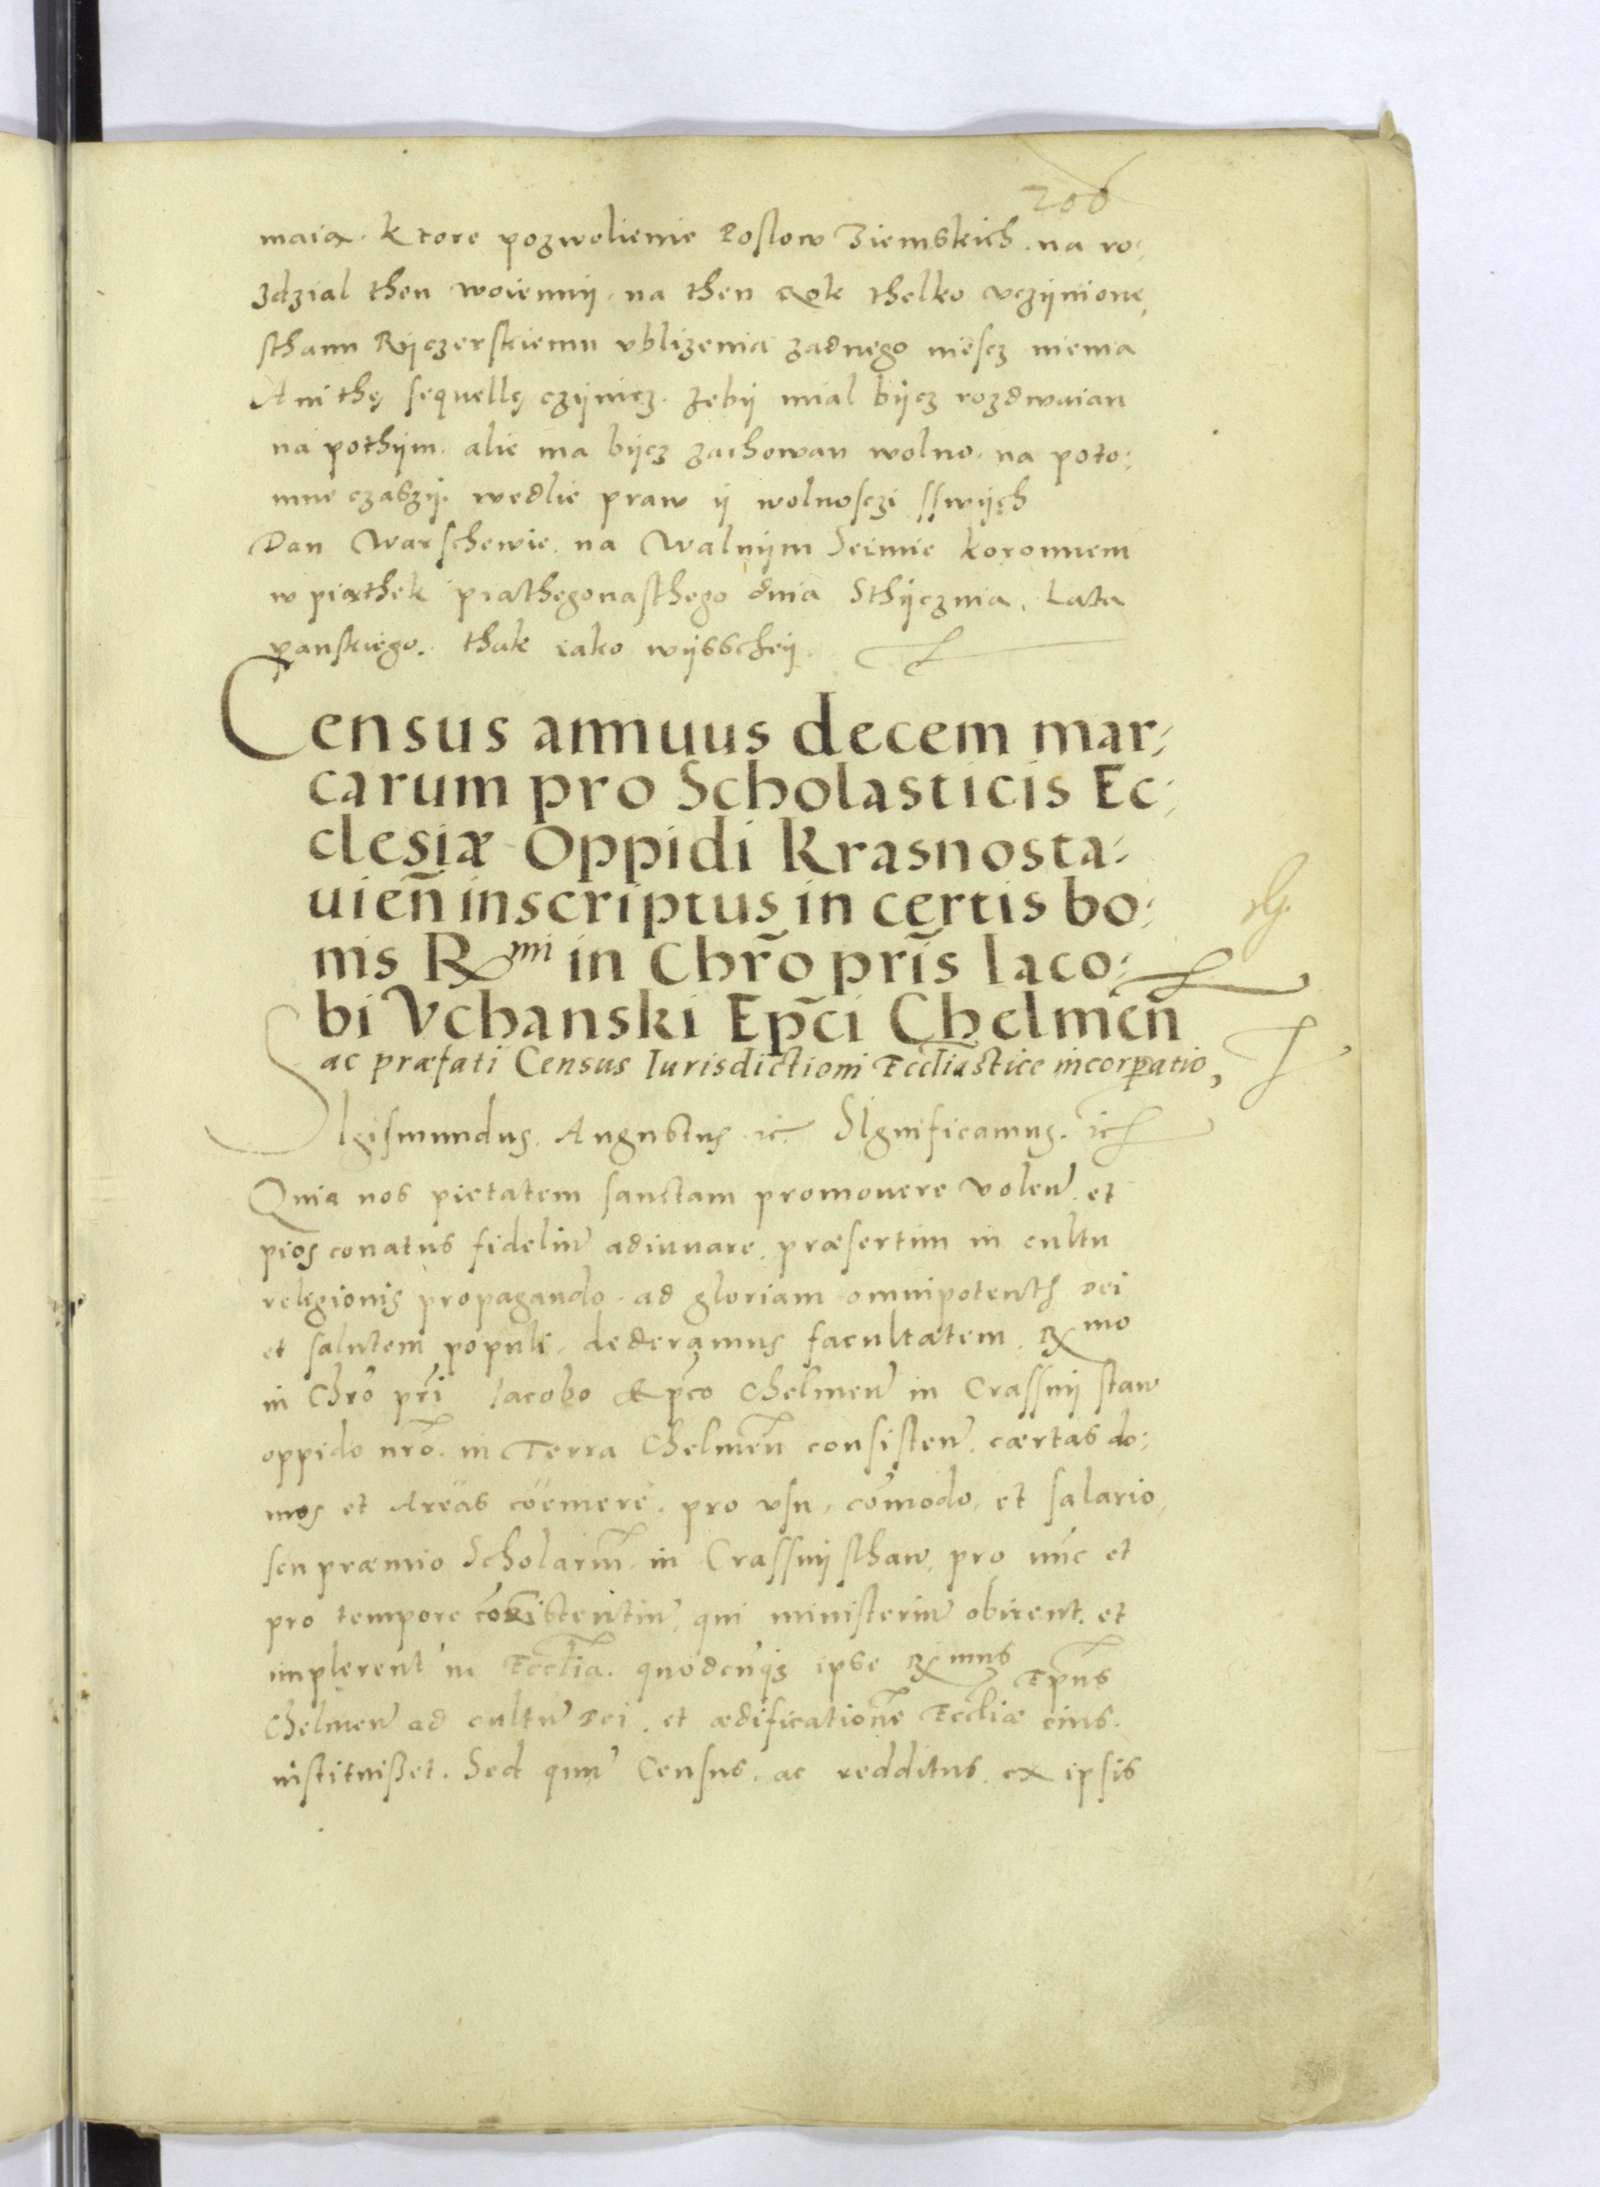 206
maią. Ktore pozwolienie Posłow Ziemskich. na ro:
zdzial then woiennij. na then Rok thelko vczijnionę,
sthanu Rijczerskiemu vblizenia zadnego niescz niema
Ani thę sequellę czijnicz. Zebij mial bijcz rozdwaian
na pothijm. alie ma bijcz zachowan wolno. na poto:
mne czasżij. wedlie praw ij wolnosczi sswijch
Dan Warschewie. na Walnijm Seimie Koronnem
w piąthek piąthegonasthego dnia Sthijcznia. Lata
panskiego. thak iako wijsschej.
Census annuus decem mar:
carum pro Scholasticis Ec:
clesiæ Oppidi Krasnosta:
uien̄ inscriptus in certis bo:
nis Rmi in Chr̄o pr̄is Iaco:
bi Vchanski Ep̄ci Chelmen̄
ac præfati Census Iurisdictioni Eccl̄iastice incorp̄atio,
SIgismundus. Augustus. ꝛc. SIgnificamus. ꝛc
Quia nos pietatem sanctam promouere volen̄. et
pios conatus fideliū adiuuare. præsertim in cultu
religionis propagando. ad gloriam omnipotentis Dei
et salutem populi. dederamus facultatem. Rmo
in Chr̄o pr̄i Iacobo Ep̄co Chelmen̄ in Crassnij staw
oppido nr̄o. in Terra Chelmen̄ consisten̄. cærtas do:
mos et Areas coëmere. pro vsu, cōmodo, et salario,
seu præmio Scholariū. in Crassnij sthaw, pro nūc et
pro tempore existentiū, qui ministeriū obirent. et
implerent in Eccl̄ia. quodcuq̄ ipse Rmus Ep̄us
Chelmen̄ ad cultū Dei. et ædificationē Eccl̄iæ eius.
instituißet. Sed quū Census. ac redditus. ex ipsis